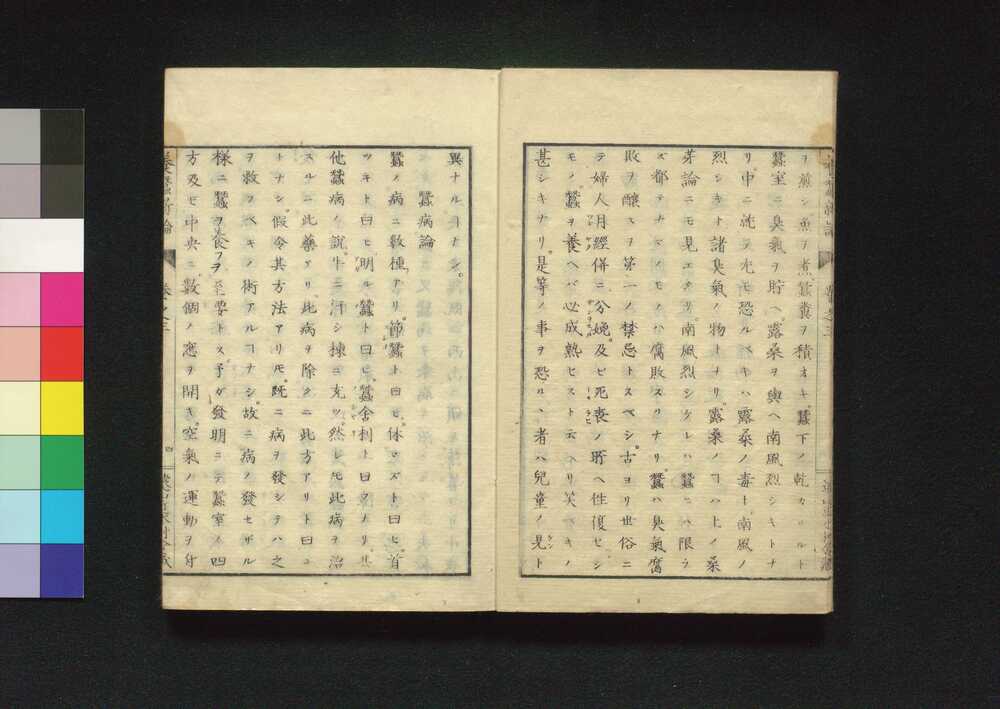 ヲ煎シ魚ヲ煮蠶糞ヲ積オキ蠶下ノ乾カザルト
蠶室ニ臭氣ヲ貯ヘ露桑ヲ與ヘ南風烈シキトナ
リ中ニ就テ尤モ恐ルベキハ露桑ノ毒ト南風ノ
烈シキト諸臭氣ノ物トナリ露桑ノコハ上ノ桑
芽論ニモ見エタリ南風烈シケレハ蠶ニハ限ラ
ズ都テナマノモノハ腐敗スルナリ蠶ハ臭氣腐
敗ヲ釀スヲ第一ノ禁忌トスベシ古ヨリ世俗ニ
テ婦人月經併ニ分娩及ビ死喪ノ所ヘ徃復セシ
モノ蠶ヲ養ヘバ必成熟セズト云ヘリ笑ベキノ
甚シキナリ是等ノ事ヲ恐ルヽ者ハ兒童ノ見ト
異ナルナシ
蠶病論
蠶ノ病ニ數種アリ節蠶ト曰ヒ休マズト曰ヒ首
ツキト曰ヒ明ル蠶ト曰ヒ蠶舍利ト曰フナリ其
他蠶病ノ說牛ニ汗シ棟ニ充ツ然レモ此病ヲ治
スルニ此藥アリ此病ヲ除クニ此方アリト曰コ
トナシ假令其方法アリモ既ニ病ヲ發シテハ之
ヲ救フベキノ術アルコナシ故ニ病ノ發セザル
樣ニ蠶ヲ養フヲ至要トス予ガ發明ニテ蠶室ノ四
方及ビ中央ニ數個ノ應ヲ開キ空氣ノ運動ヲ付
養蠶新論
卷之三
四